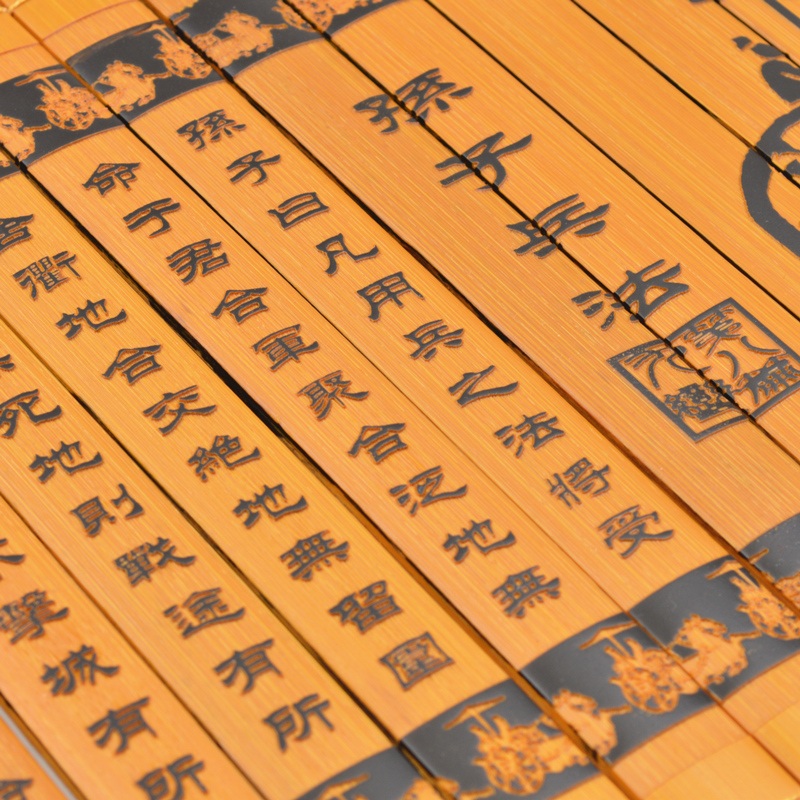 孫子兵法
孫子曰凡用兵之法將受
命于君合軍聚合泛地無
舍衢地合交絕地無留圍
死地則戰途有所
擊城有所